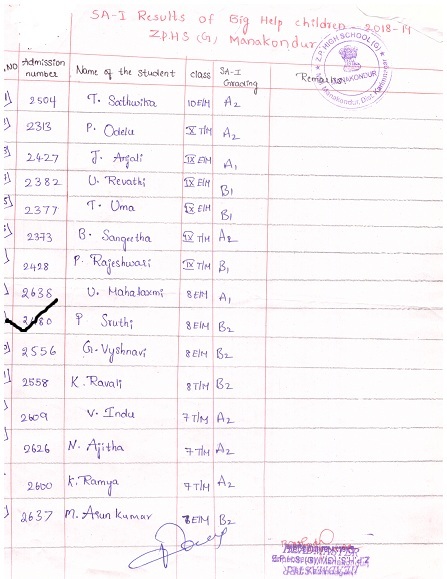 SA-I Results of Big Help children - 2018-19
ZPHS (G), Manakondur
.NO Admission number Name of the student class SA-I Grading Remarks
2504 T. Sathwika 10 E/M A2
2313 P. Odelu X T/M A2
2427 J. Anjali IX E/M A1
2382 U. Revathi IX E/M B1
2377 T. Uma IX E/M B1
2373 B. Sangeetha IX T/M A2
2428 P. Rajeshwari IX T/M B1
2638 U. Mahalaxmi 8 E/M A1
P Sruthi 8 E/M B2
2556 G. Vyshnavi 8 E/M B2
2558 K. Ravali 8 T/M B2
2609 V. Indu 7 T/M A2
2626 N. Ajitha 7 T/M A2
2600 K. Ramya 7 T/M A2
2637 M. Arun Kumar 8 E/M B2
Z.P. HIGH SCHOOL (G)
MANAKONDUR